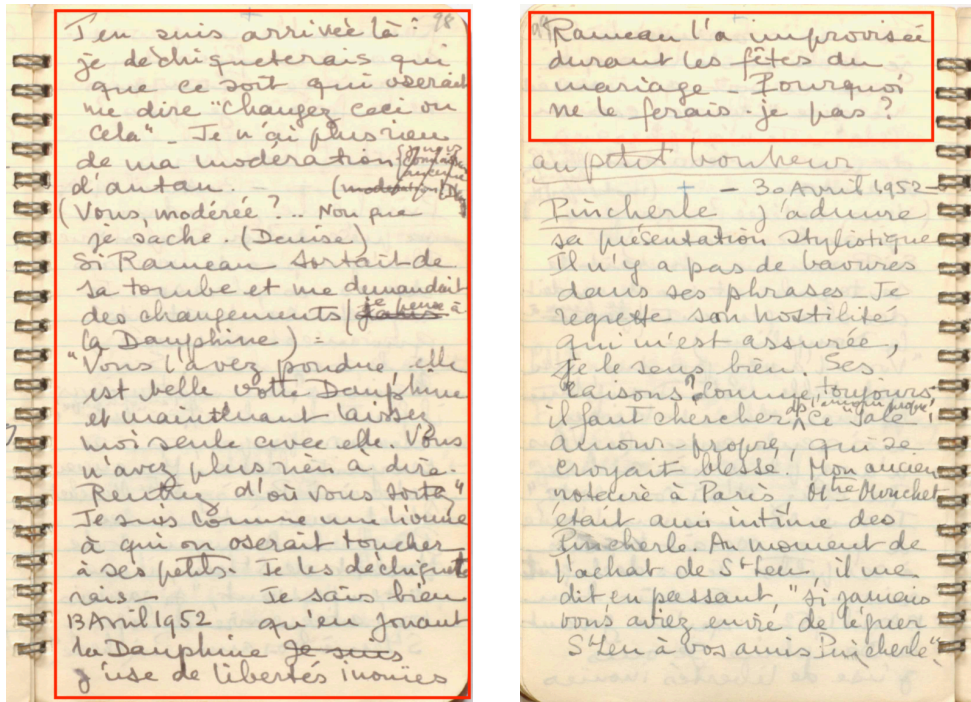 98
J'en suis arrivée là :
je déchiqueterais qui
que ce soit qui oserait
me dire "changez ceci ou
cela" - Je n'ai plus rien
de ma modération
d'antan. (
(Vous, modérée ?.. Non que
je sache. (Denise)
Si Rameau sortait de
sa tombe et me demandait
des changements je pense à
la Dauphine) =
"Vous l'avez pondue, elle
est belle votre Dauphine
et maintenant laissez
moi seule avec elle. Vous
n'avez plus rien à dire.
Rentrez d'où vous sortez"
Je suis comme une lionne
à qui on oserait toucher
à ses petits. Je les déchiquete
rais - Je sais bien
13 Avril 1952 qu'en jouant
la Dauphine je suis
j'use de libertés inouïes
99
Rameau l'a improvisée
durant les fêtes du
mariage - Pourquoi
ne le ferais-je pas ?
au petit bonheur
- 30 Avril 1952 -
Pincherle j'admire
sa présentation stylistique
Il n'y a pas de bavures
dans ses phrases - Je
regrette son hostilité
qui m'est assurée,
je le sens bien. Ses
raisons ? Comme toujours,
il faut chercher ce
amour-propre, qui se
croyait blessé. Mon ancien
notaire à Paris Mtre Mouchet
était ami intime des
Pincherle. Au moment de
l'achat de St Leu, il me
dit en passant "si jamais
vous aviez envie de léguer
St Leu à vos amis Pincherle"